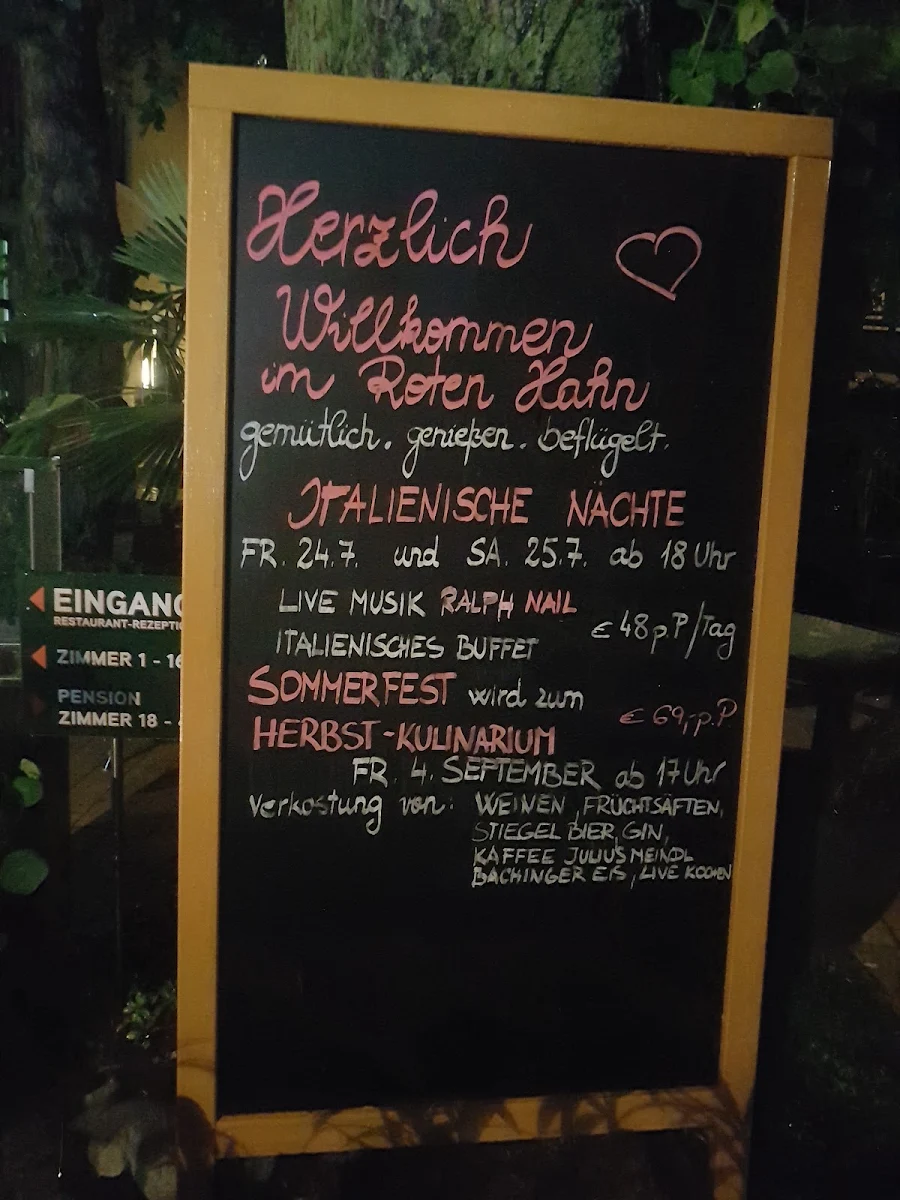 Herzlich
Willkommen
im Roten Hahn
gemütlich. genießen. beflügelt.
ITALIENISCHE NÄCHTE
FR. 24.7. und SA. 25.7. ab 18 Uhr
LIVE MUSIK RALPH NAIL
€ 48 p.P/Tag
ITALIENISCHES BUFFET
SOMMERFEST wird zum
€ 69,- p.P
HERBST-KULINARIUM
FR. 4. SEPTEMBER ab 17 Uhr
Verkostung von: WEINEN, FRUCHTSÄFTEN,
STIEGEL BIER, GIN,
KAFFEE JULIUS MEINDL
BACHINGER EIS, LIVE KOCHEN
EINGANG
RESTAURANT-REZEPTIO
ZIMMER 1 - 16
PENSION
ZIMMER 18 -